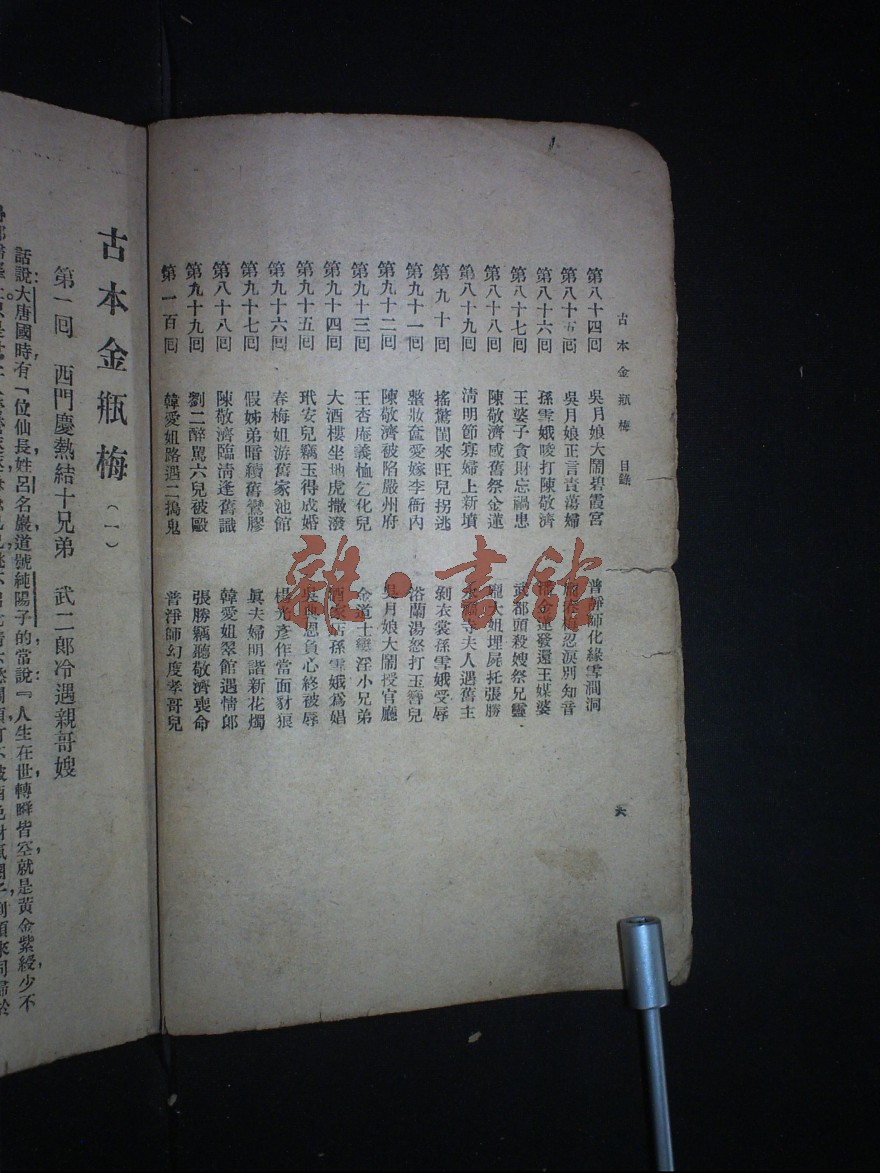 古本金瓶梅 目錄 六
第八十四回 吳月娘大鬧碧霞宮 普靜師化緣雪澗洞
第八十五回 吳月娘正言責蕩婦 忍淚別知音
第八十六回 孫雪娥唆打陳敬濟 金蓮發還王媒婆
第八十七回 王婆子貪財忘禍患 武都頭殺嫂祭兄靈
第八十八回 陳敬濟感舊祭金蓮 龐大姐埋屍托張勝
第八十九回 淸明節寡婦上新墳 永福寺夫人遇舊主
第九十回 搖驚閨來旺兒拐逃 剝衣裳孫雪娥受辱
第九十一回 整妝奩愛嫁李衙內 浴蘭湯怒打玉簪兒
第九十二回 陳敬濟被陷嚴州府 吳月娘大鬧授官廳
第九十三回 王杏庵義恤乞化兒 金道士孌淫小兄弟
第九十四回 大酒樓坐地虎撒潑 酒家店孫雪娥爲娼
第九十五回 玳安兒竊玉得成婚 吳典恩負心終被辱
第九十六回 春梅姐游舊家池館 楊光彥作當面豺狼
第九十七回 假姊弟暗續舊鸞膠 眞夫婦明諧新花燭
第九十八回 陳敬濟臨淸逢舊識 韓愛姐翠館遇情郞
第九十九回 劉二醉罵六兒被毆 張勝竊聽敬濟喪命
第一百回 韓愛姐路遇二搗鬼 普淨師幻度孝哥兒
雜·書館
古本金瓶梅（一）
第一回 西門慶熱結十兄弟 武二郞冷遇親哥嫂
話說大唐國時有一位仙長姓呂名巖道號純陽子的常說『人生在世轉瞬皆空就是黃金紫綬少不